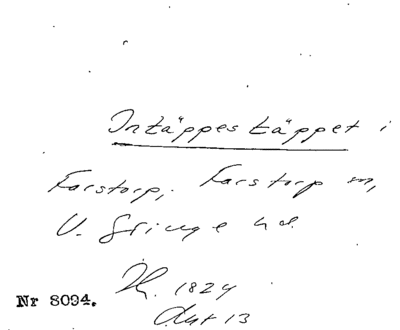 Intäppestäppet i
Farstorp, Farstorp sn,
V. Göinge hd.
1824
Akt 13
Nr 8094.